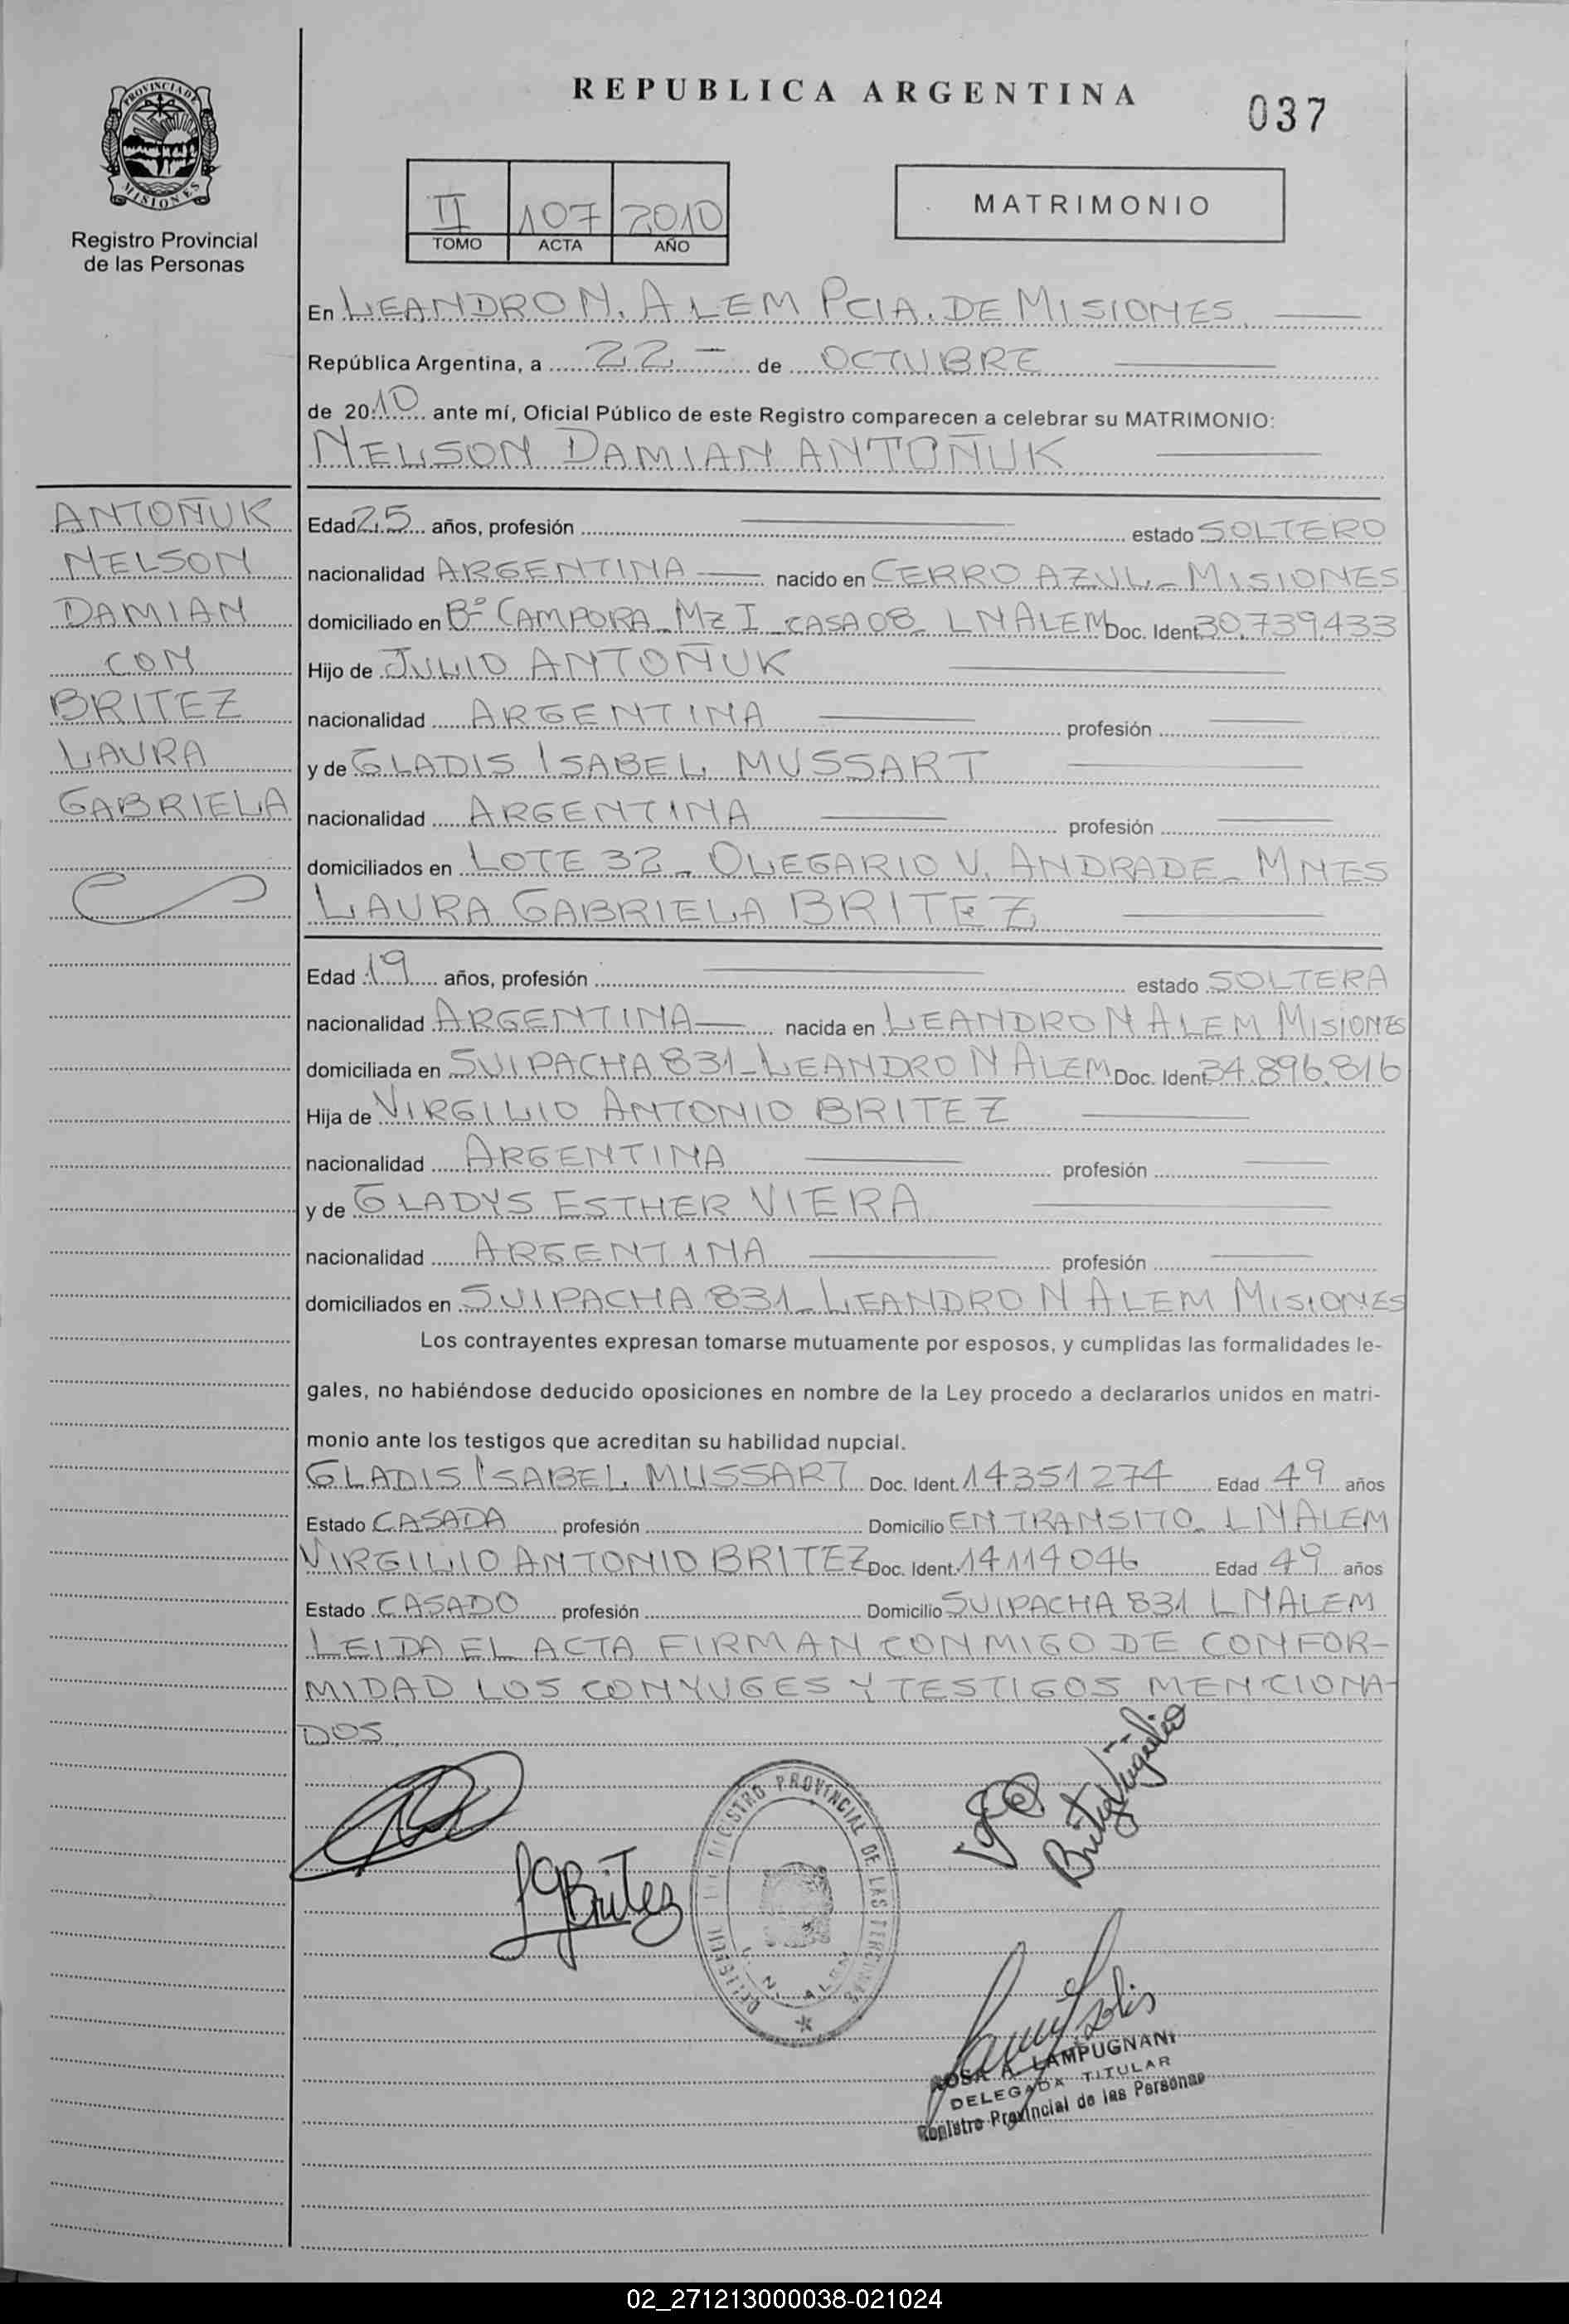 PROVINCIA DE
MISIONES
Registro Provincial
de las Personas
REPUBLICA ARGENTINA
037
II 107 2010
TOMO ACTA AÑO
MATRIMONIO
En LEANDRO N. ALEM PCIA. DE MISIONES
República Argentina, a 22 - de OCTUBRE
de 2010 ante mí, Oficial Público de este Registro comparecen a celebrar su MATRIMONIO:
NELSON DAMIAN ANTOÑUK
ANTOÑUK
NELSON
DAMIAN
CON
BRITEZ
LAURA
GABRIELA
Edad 25 años, profesión estado SOLTERO
nacionalidad ARGENTINA nacido en CERRO AZUL - MISIONES
domiciliado en Bº CAMPORA - MZ I - CASA 08 - L N ALEM Doc. Ident. 30.739.433
Hijo de JULIO ANTOÑUK
nacionalidad ARGENTINA profesión
y de GLADIS ISABEL MUSSART
nacionalidad ARGENTINA profesión
domiciliados en LOTE 32 - OLEGARIO V. ANDRADE - MNES
LAURA GABRIELA BRITEZ
Edad 19 años, profesión estado SOLTERA
nacionalidad ARGENTINA nacida en LEANDRO N ALEM MISIONES
domiciliada en SUIPACHA 831 - LEANDRO N ALEM Doc. Ident. 34.896.816
Hija de VIRGILIO ANTONIO BRITEZ
nacionalidad ARGENTINA profesión
y de GLADYS ESTHER VIERA
nacionalidad ARGENTINA profesión
domiciliados en SUIPACHA 831 - LEANDRO N ALEM MISIONES
Los contrayentes expresan tomarse mutuamente por esposos, y cumplidas las formalidades le-
gales, no habiéndose deducido oposiciones en nombre de la Ley procedo a declararlos unidos en matri-
monio ante los testigos que acreditan su habilidad nupcial.
GLADIS ISABEL MUSSART Doc. Ident. 14351274 Edad 49 años
Estado CASADA profesión Domicilio EN TRANSITO - L N ALEM
VIRGILIO ANTONIO BRITEZ Doc. Ident. 14114046 Edad 49 años
Estado CASADO profesión Domicilio SUIPACHA 831 L N ALEM
LEIDA EL ACTA FIRMAN CONMIGO DE CONFOR-
MIDAD LOS CONYUGES Y TESTIGOS MENCIONA-
DOS
LGBritez
Britez Virgilio
REGISTRO PROVINCIAL DE LAS PERSONAS
L. N. ALEM
ROSA A. LAMPUGNANI
DELEGADA TITULAR
Registro Provincial de las Personas
02_271213000038-021024